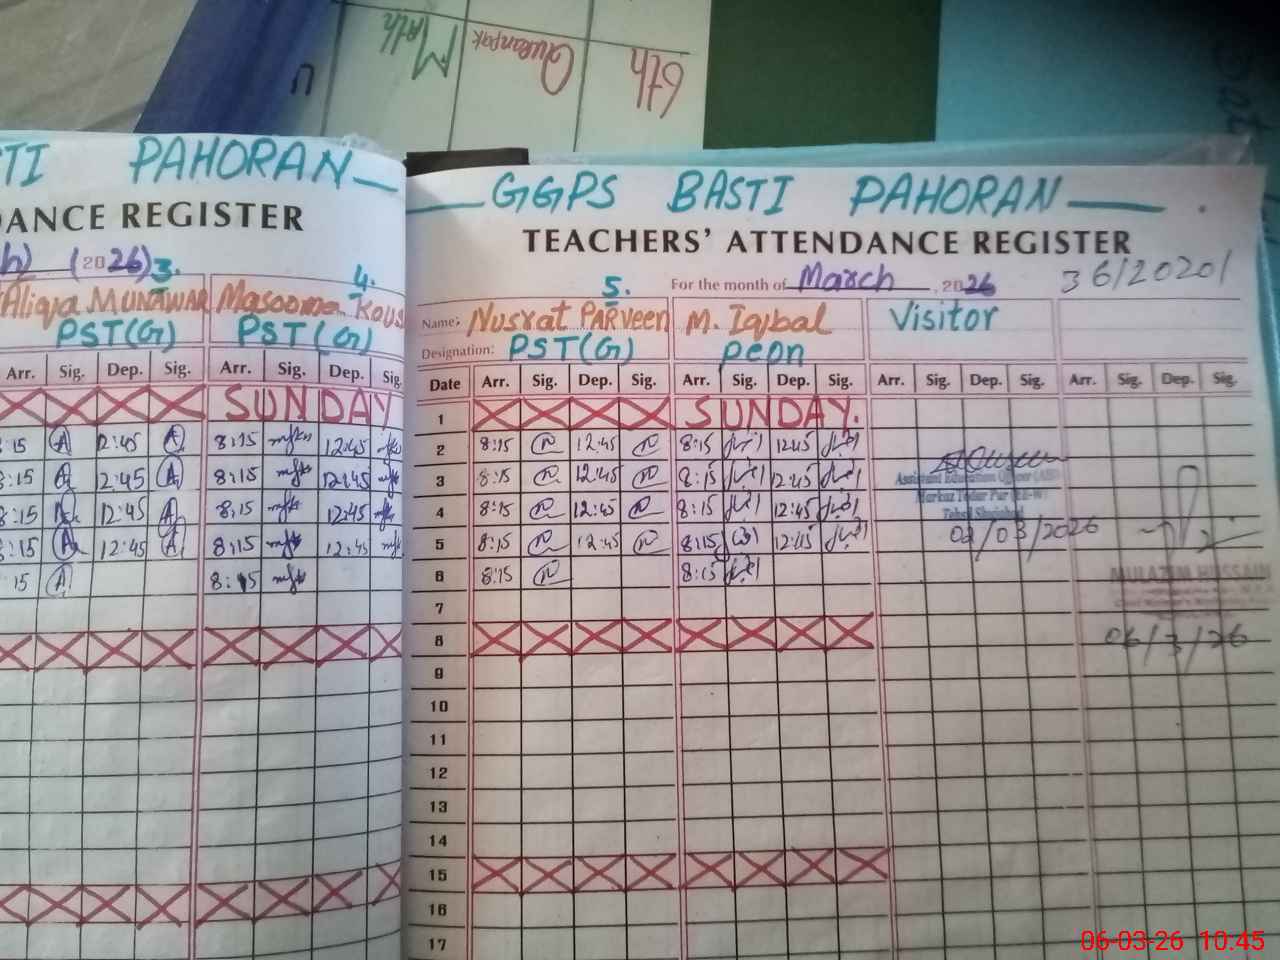 6th
Quranpak
Math
STI PAHORAN
GGPS BASTI PAHORAN
DANCE REGISTER
TEACHERS' ATTENDANCE REGISTER
(2026) 3. 4.
5. For the month of March, 2026 36/2020/
Aliqya MUNAWAR Masooma Kous
PST(G) PST(G)
Name: Nusrat PARVeen M. Iqbal Visitor
Designation: PST(G) Peon
Arr. Sig. Dep. Sig. Arr. Sig. Dep. Sig.
Date Arr. Sig. Dep. Sig. Arr. Sig. Dep. Sig. Arr. Sig. Dep. Sig. Arr. Sig. Dep. Sig.
SUNDAY
1 SUNDAY.
:15 12:45 8:15 12:45
2 8:15 12:45 8:15 12:45
8:15 12:45 8:15 12:45
3 8:15 12:45 8:15 12:45
8:15 12:45 8:15 12:45
4 8:15 12:45 8:15 12:45
8:15 12:45 8:15 12:45
5 8:15 12:45 8:15 12:45
15 8:15
6 8:15 8:15
7
8
9
10
11
12
13
14
15
16
17
Assistant Education Officer
Markaz Todar Pur (EE-W)
Tehsil Shujabad
02/03/2026
MULAZIM HUSSAIN
06/3/26
06-03-26 10.45